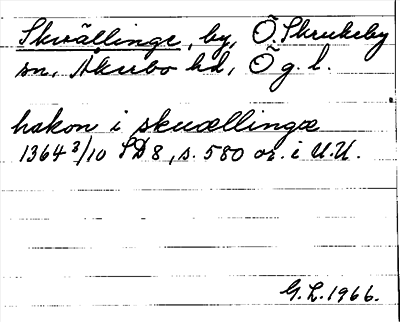 Skvällinge, by, Ö. Skrukeby
sn, Åkerbo hd, Ög. l.
hakon i skuællingæ
1364 3/10 SD 8, s. 580 or. i U.U.
G.L. 1966.